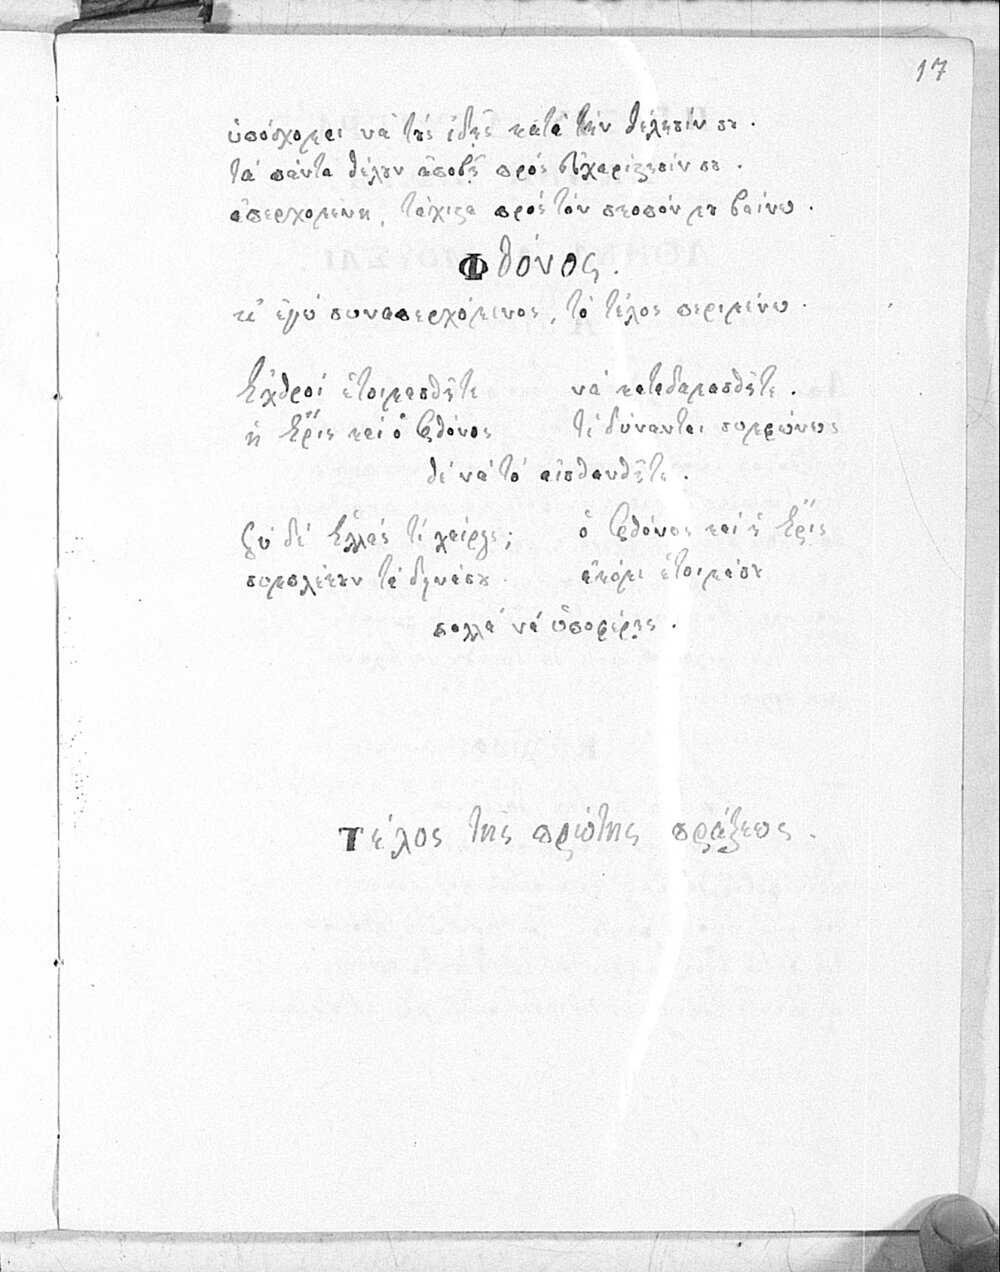 17
ὑπόσχομαι να τοὺς ἰδῇς κατὰ τὴν θέλησίν σου.
τὰ πάντα θέλουν ἀποβῇ πρὸς εὐχαρίστησίν σου.
ἀπερχομένη, τάχιστα πρὸς τὸν σκοπόν μου βαίνω.
Φθόνος.
κ' ἐγὼ συναπερχόμενος, τὸ τέλος περιμένω.
Ἐχθροί ἑτοιμασθῆτε νὰ καταδαμασθῆτε.
ἡ Ἔρις καὶ ὁ Φθόνος τί δύνανται συμφώνως
θὲ νὰ τὸ αἰσθανθῆτε.
Σὺ δὲ Ἑλλὰς τί χαίρεις; ὁ Φθόνος καὶ ἡ Ἔρις
συμπλέκουν τὰ δεινά σου. ἀκόμι ἑτοιμάσου
πολλὰ νὰ ὑποφέρῃς.
Τέλος τῆς πρώτης πράξεως.